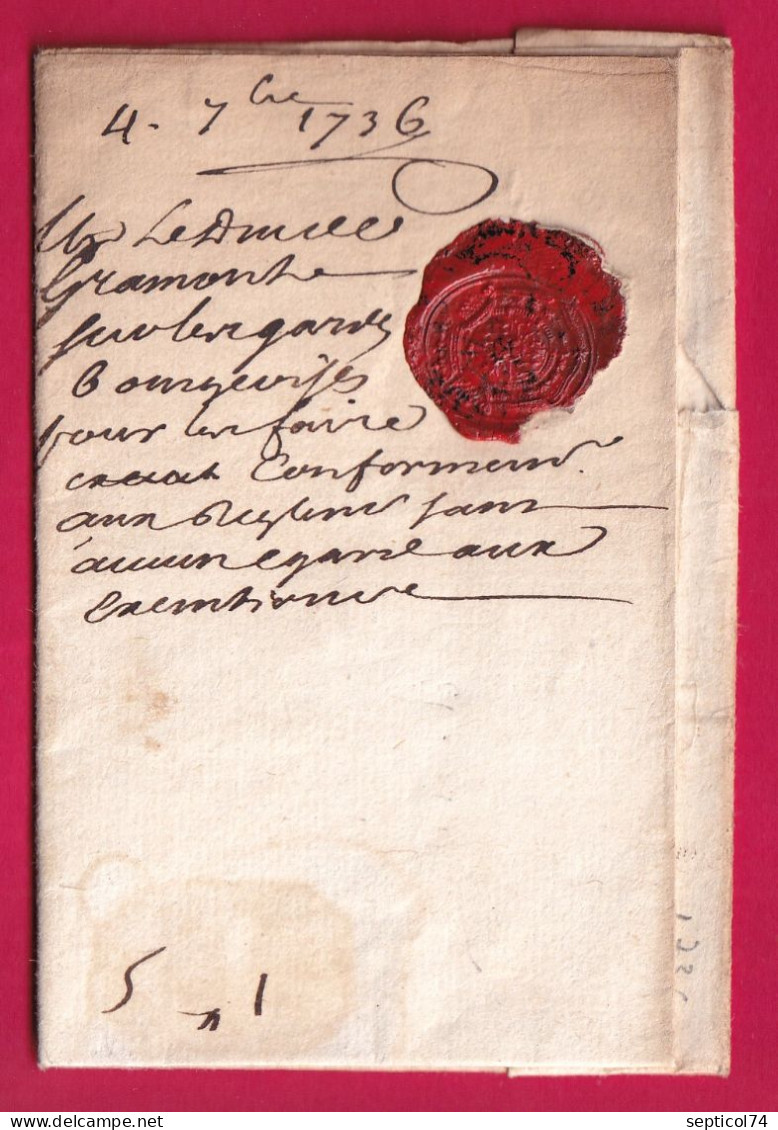 4. 7bre 1736
Mr Le Duc de
Gramont
sur les gardes
bourgeoises
pour les faire
Conformem.
aux Reglem sans
aucun egard aux
exemptions
5 1
septicol74